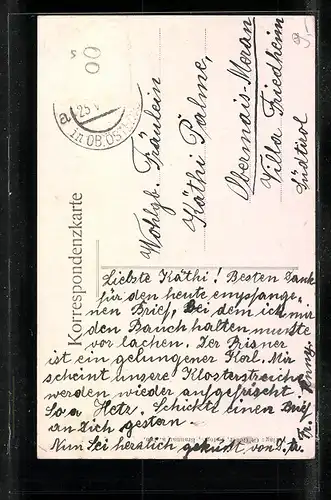 Korrespondenzkarte
25
in OB.ÖST
Wohlgb. Fräulein
Käthi Palme,
Obermais-Meran
Villa Friedheim
Südtirol
Liebste Käthi! Besten Dank
für den heute empfange-
nen Brief, bei dem ich mir
den Bauch halten musste
vor lachen. Der Prisner
ist ein gelungener Korl. Mir
scheint unsere Klosterstreiche
werden wieder aufgefrischt
So a Hetz. Schickte einen Brief
an Dich gestan.
Nun sei herzlich geküsst von D. tr.
Fr.